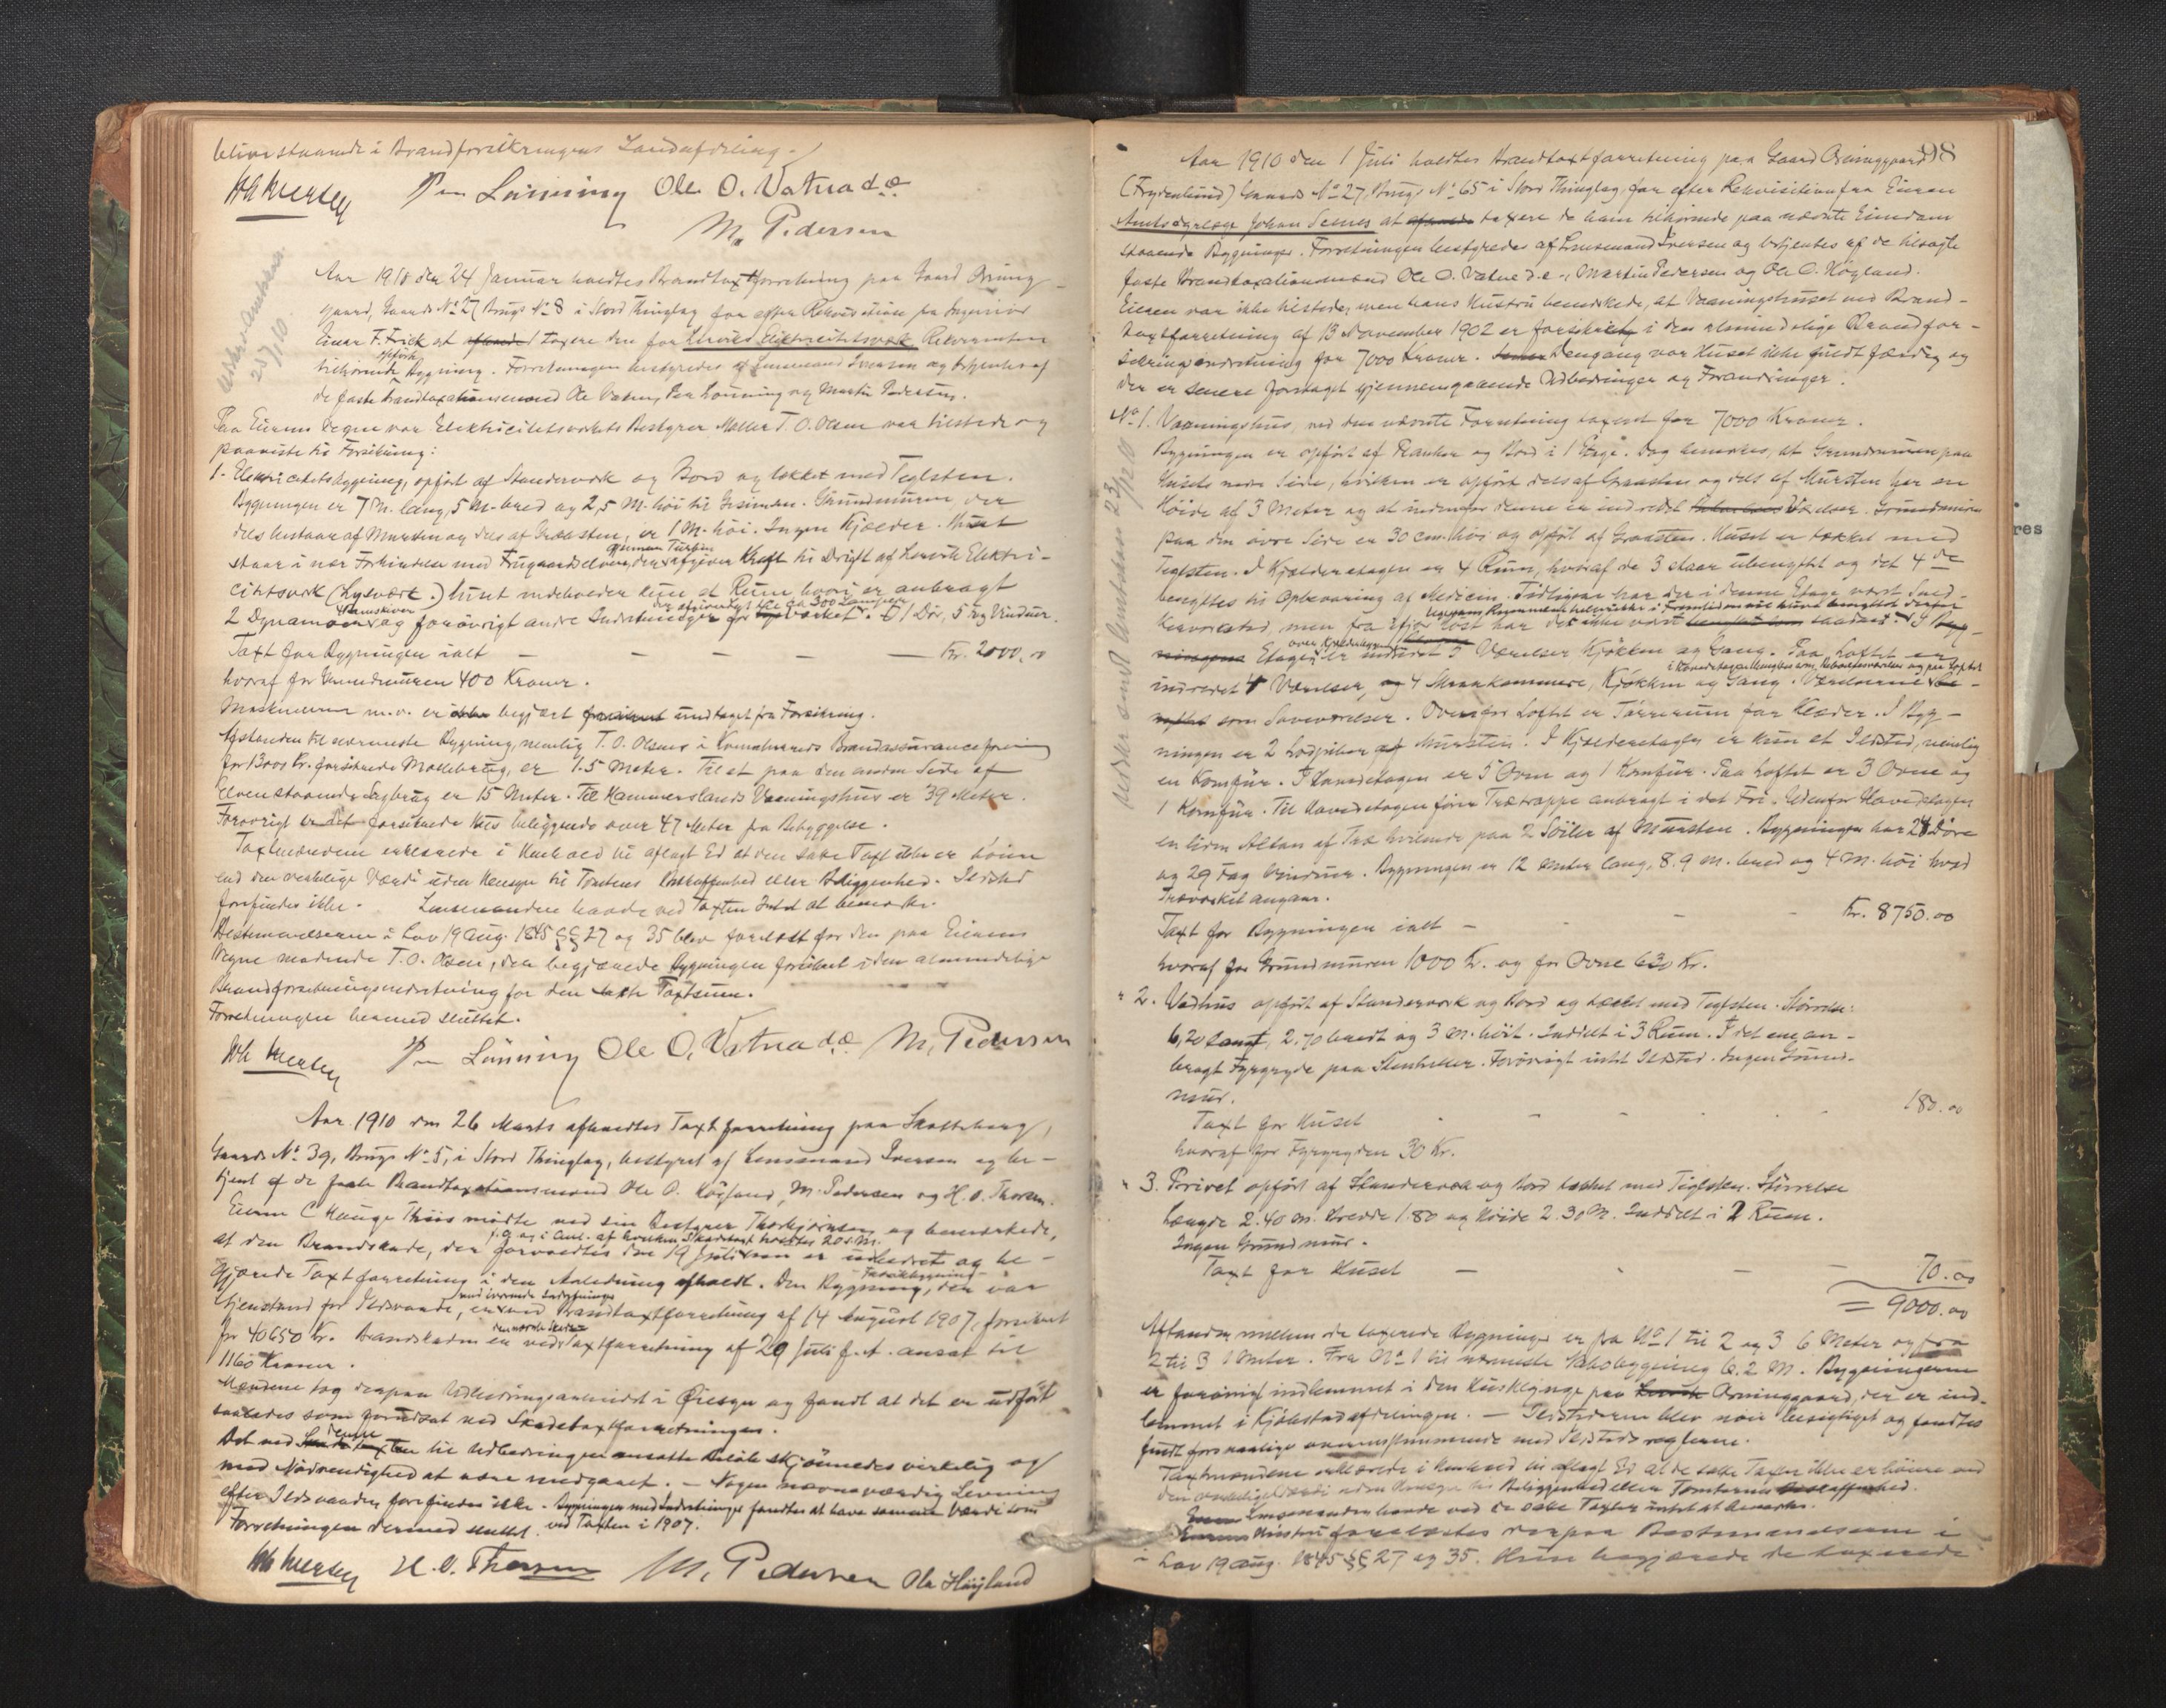 blive staaende i Brandforsikringens Landafdeling.
Per Lønning Ole O. Vatna d.æ.
M. Pedersen
Udskr. sendt Amtsskr.
25/1 10.
Aar 1910 den 24 Januar holdtes Brandtaxtforretning paa Gaard Orning-
gaard, Gaards No 27 Brugs No 8 i Stord Thinglag for efter Rekvisition fra Ingeniør
Einar F. Frick at afholde taxere den for Lervik Elektricitetsværk Rekvirenten
tilhørende opførte Bygning. Forretningen bestyredes af Lensmand Iversen og betjentes af
de faste Brandtaxationsmænd Ole Vatne, Per Lønning og Martin Pedersen.
Paa Eierens Vegne var Elektricitetsværkets Bestyrer Møller T. O. Olsen var tilstede og
paaviste til Forsikring:
1. Elektricitetsbygning, opført af Standerværk og Bord og tækket med Teglsten.
Bygningen er 7 M. lang, 5 M. bred og 2,5 M. høi til Gesimsen. Grundmuren der
dels bestaar af Mursten og dels af Graasten, er 1 M. høi. Ingen Kjælder. Huset
staar i nær Forbindelse med Frugaardselven, der gjennem Turbin afgiver Kraft til Drift af Lervik Elektri-
citetsverk (Lysværk.) Huset indeholder kun et Rum hvori er anbragt
2 Dynamoer og forøvrigt andre Indretninger for værket. 1 Dør, 5 Fag Vinduer.
Taxt for Bygningen ialt — — — — Kr. 2000.00
hvoraf for Grundmuren 400 Kroner.
Maskinerne m.v. er ikke begjært forsikret undtaget fra Forsikring.
Afstanden til nærmeste Bygning, nemlig T. O. Olsens i Brandassuranceforening
for 1300 Kr. forsikrede Møllebrug, er 1.5 Meter. Til et paa den anden Side af
Elven staaende Sagbrug er 15 Meter. Til Hammerslands Vaaningshus er 39 Meter.
Forøvrigt er det forsikrede Hus beliggende over 47 Meter fra Bebyggelse.
Taxtmændene erklærede i Henhold til aflagt Ed at den satte Taxt ikke er høiere
end den virkelige Værdi uden Hensyn til Tomtens Beskaffenhed eller Beliggenhed. Ildsted
forefindes ikke. Lensmanden havde ved Taxten Intet at bemærke.
Bestemmelserne i Lov 19 Aug. 1845 §§ 27 og 35 blev forelæst for den paa Eierens
Vegne mødende T. O. Olsen, der begjærede Bygningen forsikret i den almindelige
Brandforsikringsindretning for den satte Taxtsum.
Forretningen hermed sluttet.
Per Lønning Ole O. Vatna d.æ. M. Pedersen
Aar 1910 den 26 Marts afholdtes Taxtforretning paa Skotteberg,
Gaards No 39, Brugs No 5, i Stord Thinglag, bestyret af Lensmand Iversen og be-
tjent af de faste Brandtaxationsmænd Ole O. Høiland, M. Pedersen og H. O. Thorsen.
Eieren C Hauge Thiis mødte ved sin Bestyrer Thorbjørnsen og bemærkede,
at den Brandskade, der forvoldtes den 19 Juli f. A. og i Anl. af hvilken Skadetaxt holdtes 20 s. M. er udbedret og be-
gjærede Taxtforretning i den Anledning afholdt. Den Bygning, Fabrikbygning der var
Gjenstand for Ildsvaade, er med iværende Indretninger ved Brandtaxtforretning af 14 August 1907, forsikret
for 40650 Kr. Brandskaden er ved Taxtforretning af 20 Juli f. A. ansat til
1160 Kroner.
Mændene tog derpaa Udbedringsarbeidet i Øiesyn og fandt at det er udført
saaledes som forudsat ved Skadetaxtforretningen.
Det ved denne til Udbedringen ansatte Beløb skjønnedes virkelig og
med Nødvendighed at være medgaaet. — Nogen nævneværdig Levning
efter Ildsvaaden forefindes ikke. Bygningen med Indretninger fandtes at have samme Værdi som
ved Taxten i 1907.
Forretningen dermed sluttet.
H. O. Thorsen M. Pedersen Ole Høyland
98
Aar 1910 den 1 Juli holdtes Brandtaxtforretning paa Gaard Orninggaard
(Frydenlund) Gaards No 27, Brugs No 65 i Stord Thinglag, for efter Rekvisition fra Eieren
Amtsdyrlæge Johan Seines at afholde taxere de ham tilhørende paa nævnte Eiendom
staaende Bygninger. Forretningen bestyredes af Lensmand Iversen og betjentes af de tilsagte
faste Brandtaxationsmænd Ole O. Vatne d.e., Martin Pedersen og Ole O. Høgland.
Eieren var ikke tilstede, men hans Hustru bemærkede, at Vaaningshuset ved Brand-
taxtforretning af 13 November 1902 er forsikret i den almindelige Brandfor-
sikringsindretning for 7000 Kroner. Dengang var Huset ikke fuldt færdig og
der er senere foretaget gjennemgaaende Udbedringer og Forandringer.
Udskr. sendt Amtsskr. 23/7 10
No 1. Vaaningshus, ved den nævnte Forretning taxeret for 7000 Kroner.
Bygningen er opført af Planker og Bord i 1 Etage. Dog bemærkes, at Grundmuren paa
Husets nedre Side, hvilken er opført dels af Graasten og dels af Mursten har en
Høide af 3 Meter og at indenfor denne er indredet Værelser. Grundmuren
paa den øvre Side er 30 cm. høi og opført af Graasten. Huset er tækket med
Teglsten. I Kjælderetagen er 4 Rum, hvoraf de 3 staar ubenyttet og det 4de
benyttes til Opbevaring af Medicin. Tidligere har der i denne Etage været Sned-
kerværksted, men fra ifjor høst har det ikke været saadant.
Etagen over Kjælderetagen er indredet 5 Værelser Kjøkken og Gang. Paa Loftet er
indredet 4 Værelser, 4 Skraakammere, Kjøkken og Gang.
som Soveværelser. Ovenfor Loftet er Tørrerum for Klæder. I Byg-
ningen er 2 Lodpiber af Mursten. I Kjælderetagen er kun et Ildsted, nemlig
en Komfur. I Hovedetagen er 5 Ovne og 1 Komfur. Paa Loftet er 3 Ovne og
1 Komfur. Til Hovedetagen fører Trætrappe anbragt i det Fri. Udenfor Hovedetagen
en liden Altan af Træ hvilende paa 2 Søiler af Mursten. Bygningen har 24 Døre
og 29 Fag Vinduer. Bygningen er 12 Meter lang, 8.9 M. bred og 4 M. høi hvad
Træværket angaar.
Taxt for Bygningen ialt — Kr. 8750.00
hvoraf for Grundmuren 1000 Kr. og for Ovne 630 Kr.
" 2. Vedhus opført af Standerværk og Bord og tækket med Teglsten. Størrelse:
6,20 langt, 2.70 bredt og 3 M. høit. Inddelt i 3 Rum. I det ene an-
bragt Fyrgryde paa Stenheller. Forøvrigt intet Ildsted. Ingen Grund-
mur.
Taxt for Huset 180.00
hvoraf for Fyrgryden 30 Kr.
" 3. Privet opført af Standerværk og Bord tækket med Teglsten. Størrelse
Længde 2.40 M. Bredde 1.80 og Høide 2.30 M. Inddelt i 2 Rum.
Ingen Grundmur.
Taxt for Huset — 70.00
= 9000.00
Afstanden mellem de taxerede Bygninger er fra No 1 til 2 og 3 6 Meter og fra
2 til 3 1 Meter. Fra No 1 til nærmeste Nabobygning 6.2 M. Bygningerne
er forøvrigt indlemmet i den Husklynge paa Orninggaard, der er ind-
lemmet i Kjøbstadafdelingen. — Ildstederne blev nøie besigtiget og fandtes
fuldt forsvarlige overensstemmende med Ildstedsreglerne.
Taxtmændene erklærede i Henhold til aflagt Ed at de satte Taxter ikke er høiere end
den virkelige Værdi uden Hensyn til Beliggenhed eller Tomternes Beskaffenhed.
Lensmanden havde ved de satte Taxter intet at bemærke.
Hustru forelæstes derpaa Bestemmelserne i
Lov 19 Aug. 1845 §§ 27 og 35. Hun begjærede de taxerede
res